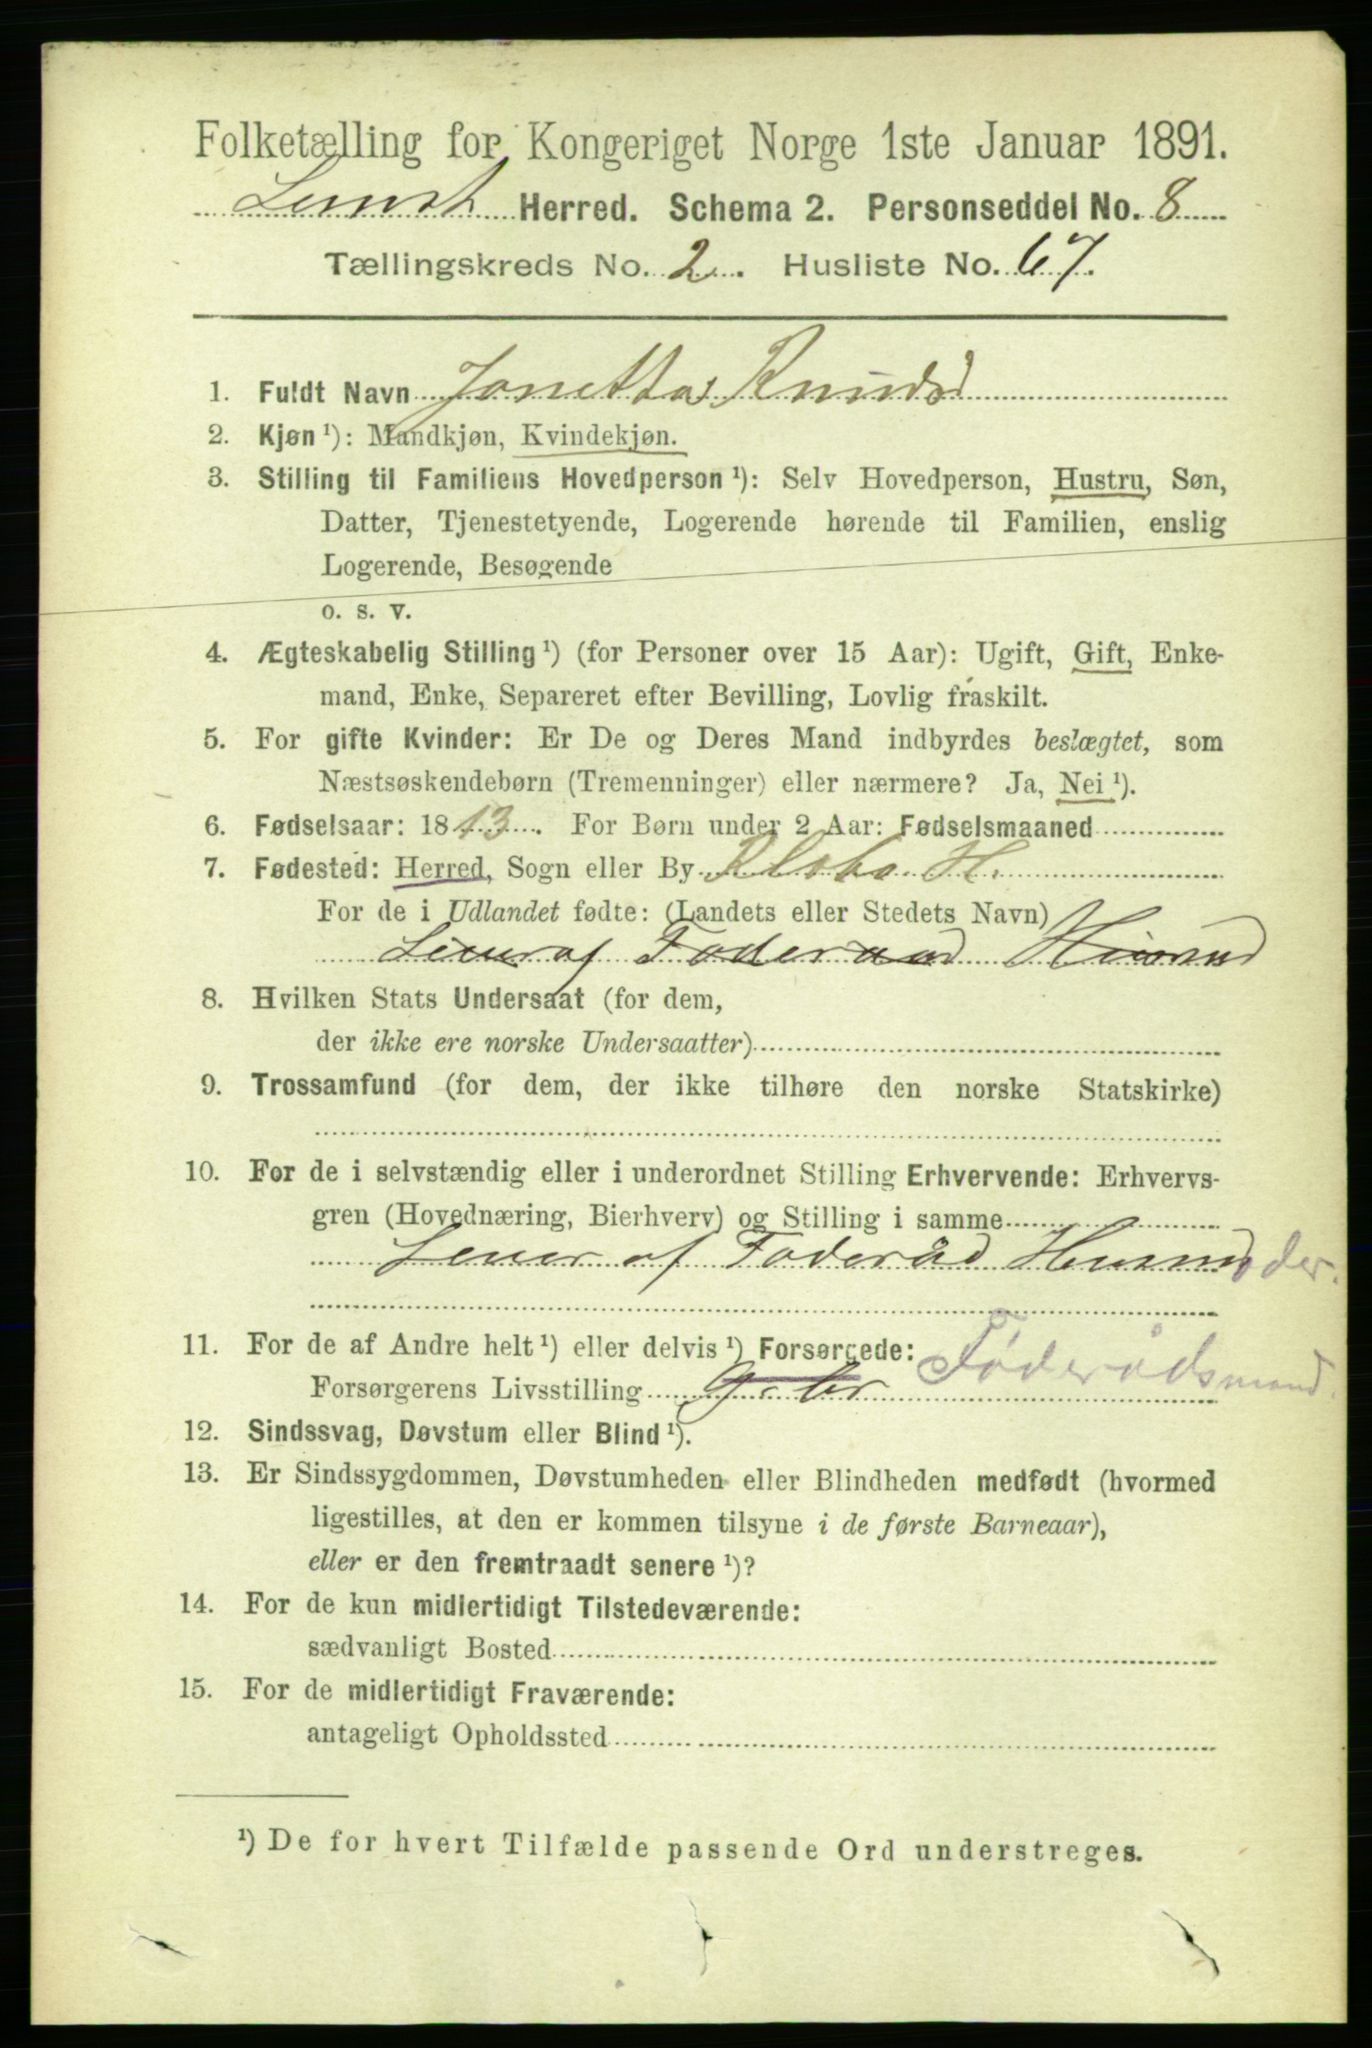 Folketælling for Kongeriget Norge 1ste Januar 1891.
Herred. Schema 2. Personseddel No. 8
Tællingskreds No. 2. Husliste No. 67.
1. Fuldt Navn Jonetta Knudsd
2. Kjøn ¹): Mandkjøn, Kvindekjøn.
3. Stilling til Familiens Hovedperson ¹): Selv Hovedperson, Hustru, Søn,
Datter, Tjenestetyende, Logerende hørende til Familien, enslig
Logerende, Besøgende
o. s. v.
4. Ægteskabelig Stilling ¹) (for Personer over 15 Aar): Ugift, Gift, Enke-
mand, Enke, Separeret efter Bevilling, Lovlig fraskilt.
5. For gifte Kvinder: Er De og Deres Mand indbyrdes beslægtet, som
Næstsøskendebørn (Tremenninger) eller nærmere? Ja, Nei ¹).
6. Fødselsaar: 1813. For Børn under 2 Aar: Fødselsmaaned
7. Fødested: Herred, Sogn eller By Klebo H.
For de i Udlandet fødte: (Landets eller Stedets Navn)
Lever af Foderaad
8. Hvilken Stats Undersaat (for dem,
der ikke ere norske Undersaatter)
9. Trossamfund (for dem, der ikke tilhøre den norske Statskirke)
10. For de i selvstændig eller i underordnet Stilling Erhvervende: Erhvervs-
gren (Hovednæring, Bierhverv) og Stilling i samme
Lever af Foderåd Husmoder.
11. For de af Andre helt ¹) eller delvis ¹) Forsørgede:
Forsørgerens Livsstilling Føderådsmand.
12. Sindssvag, Døvstum eller Blind ¹).
13. Er Sindssygdommen, Døvstumheden eller Blindheden medfødt (hvormed
ligestilles, at den er kommen tilsyne i de første Barneaar),
eller er den fremtraadt senere ¹)?
14. For de kun midlertidigt Tilstedeværende:
sædvanligt Bosted
15. For de midlertidigt Fraværende:
antageligt Opholdssted
¹) De for hvert Tilfælde passende Ord understreges.